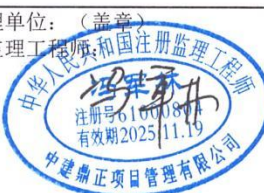 理单位：（盖章）
监理工程师：
中华人民共和国注册监理工程师
冯军林
注册号61000804
有效期2025.11.19
中建鼎正项目管理有限公司